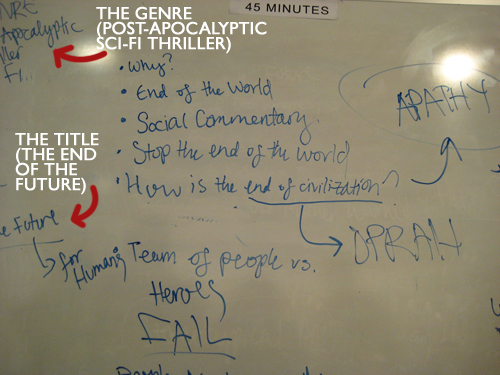 45 MINUTES
THE GENRE
(POST-APOCALYPTIC
SCI-FI THRILLER)
Apocalyptic
• Why?
• End of the World
• Social Commentary.
• Stop the end of the world
• How is the end of civilization?
APATHY
OPRAH
THE TITLE
(THE END
OF THE
FUTURE)
e Future
for Humans
Team of people vs.
Heroes
FAIL